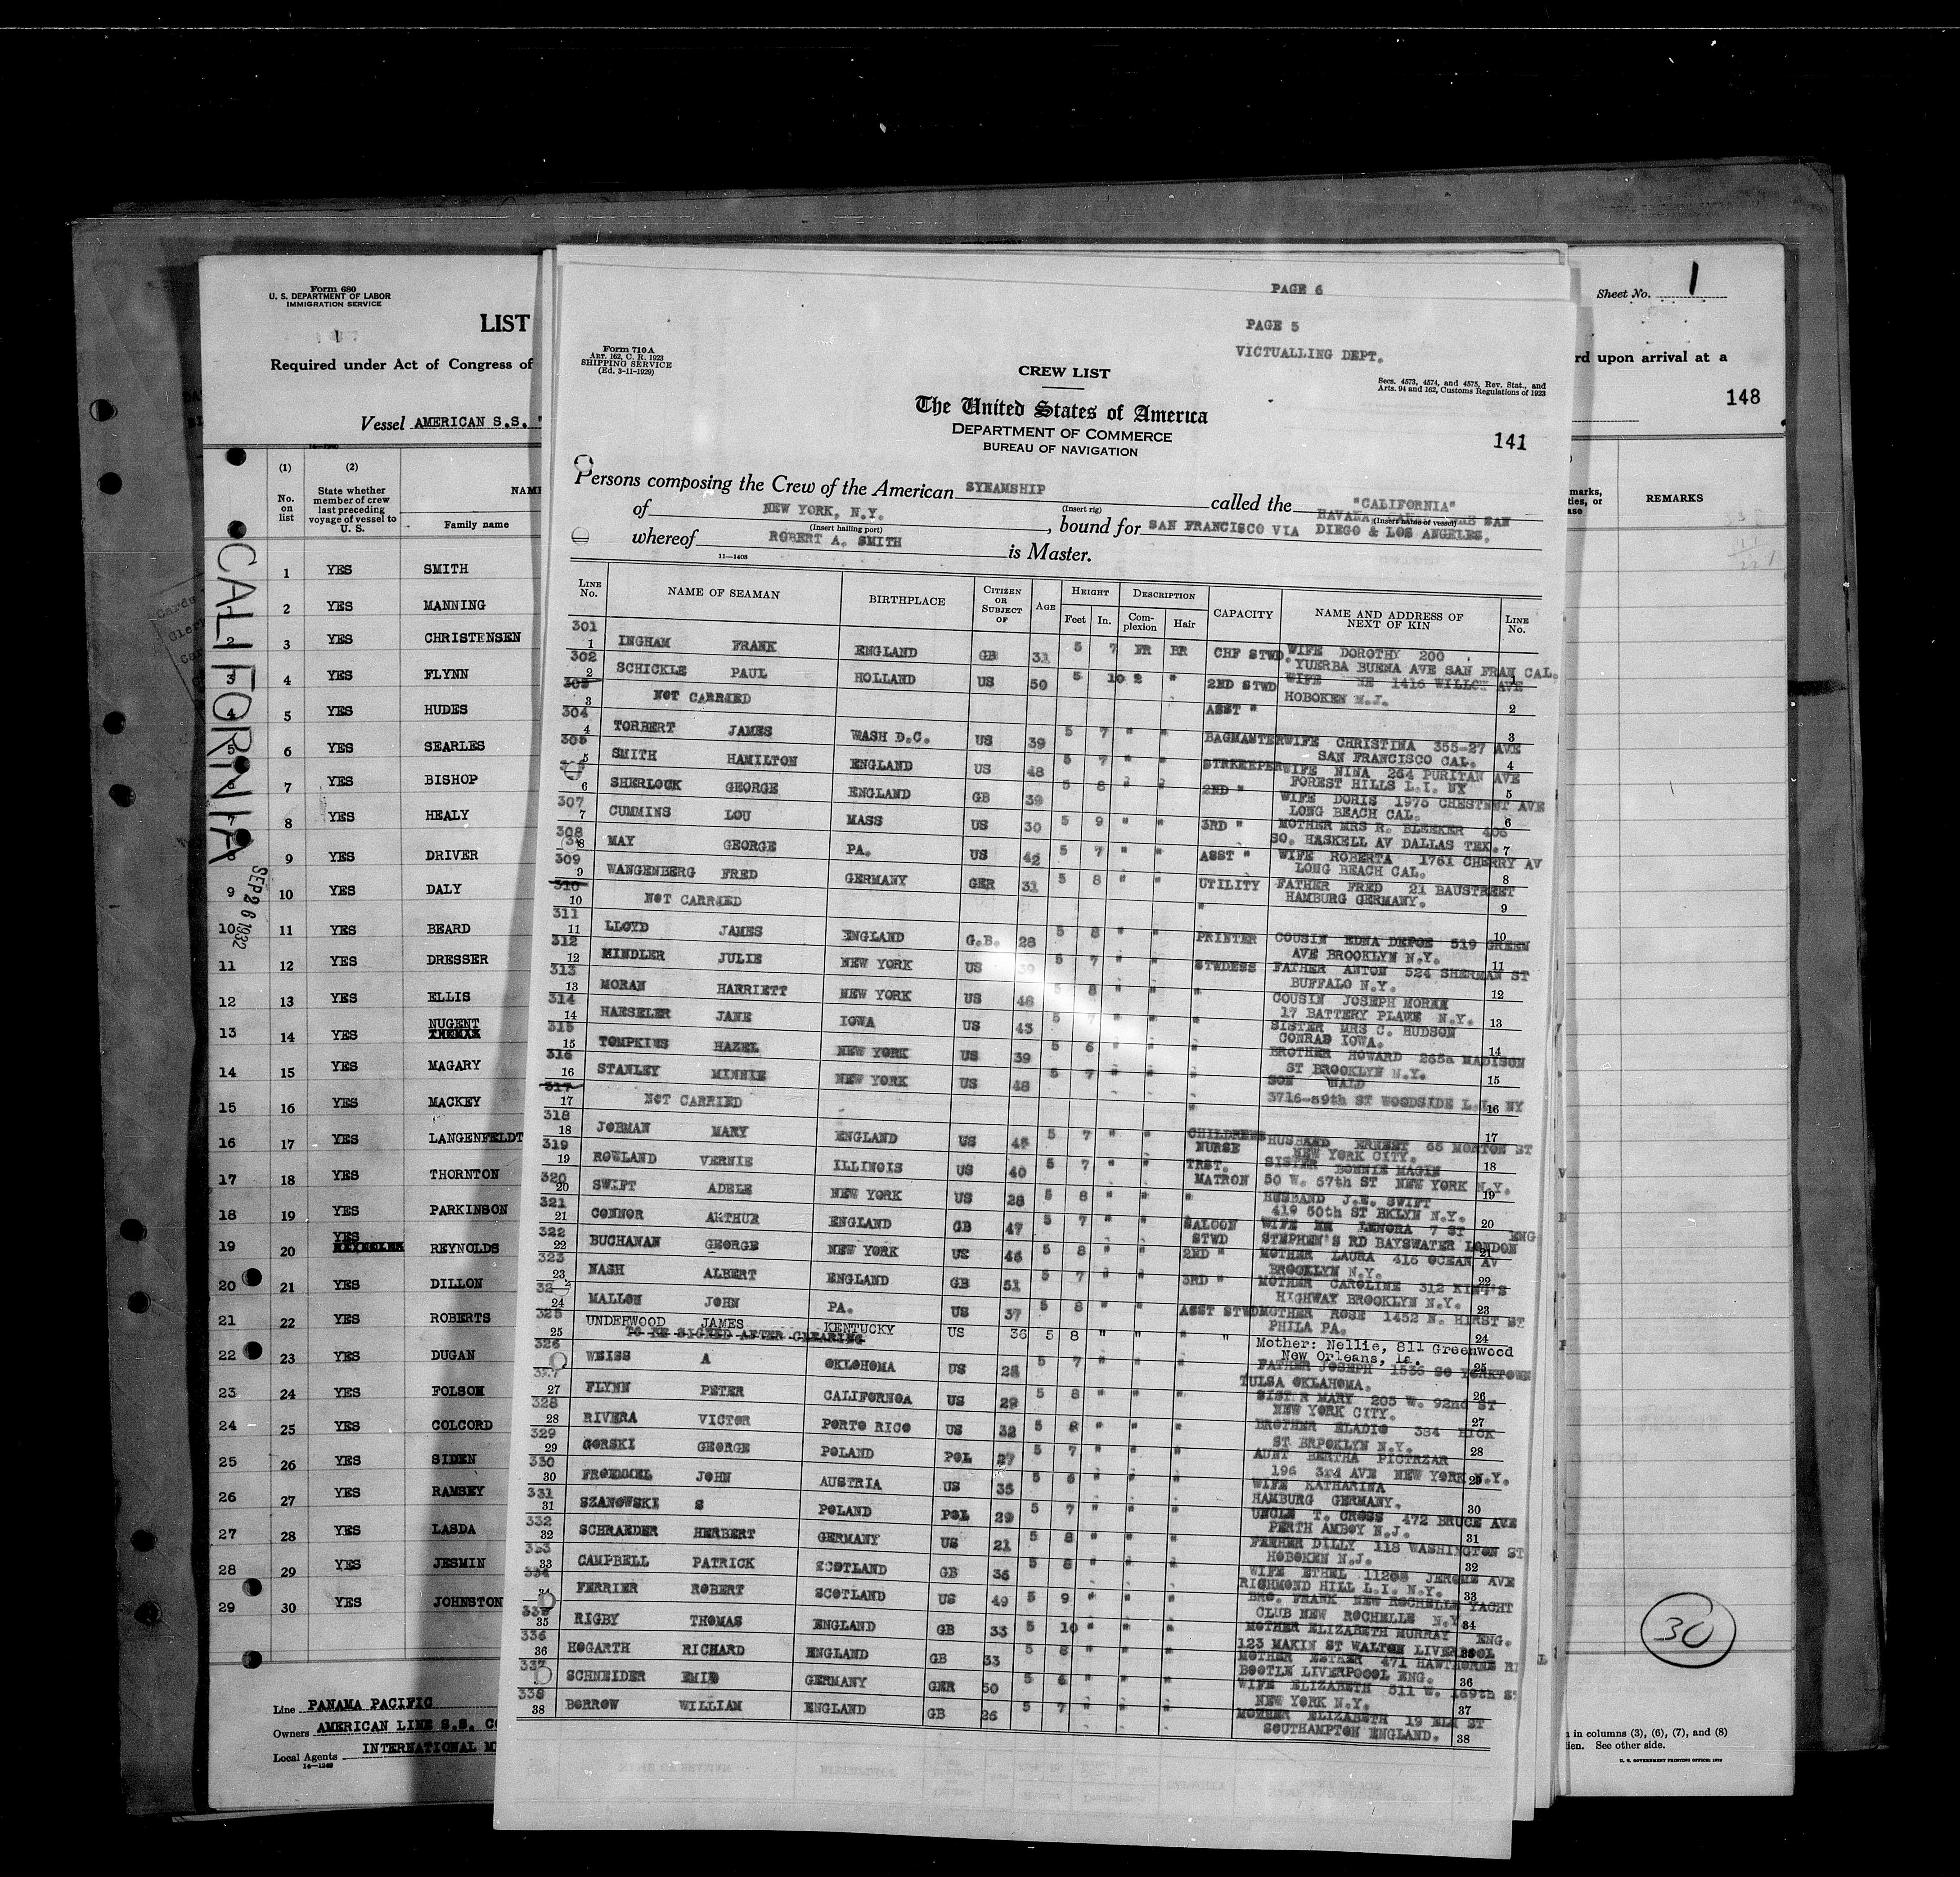 PAGE 6
PAGE 5
VICTUALLING DEPT.
Form 710 A
ART. 162, C. R. 1923
SHIPPING SERVICE
(Ed. 3-11-1929)
CREW LIST
Secs. 4573, 4574, and 4575, Rev. Stat., and
Arts. 94 and 162, Customs Regulations of 1923
The United States of America
DEPARTMENT OF COMMERCE
BUREAU OF NAVIGATION
141
Persons composing the Crew of the American SYEAMSHIP called the "CALIFORNIA"
(Insert rig) (Insert name of vessel)
of NEW YORK, N.Y., bound for SAN FRANCISCO VIA HAVANA, SAN
(Insert hailing port) DIEGO & LOS ANGELES.
whereof ROBERT A. SMITH is Master.
11—1408
LINE No. NAME OF SEAMAN BIRTHPLACE CITIZEN OR SUBJECT OF AGE HEIGHT Feet In. DESCRIPTION Complexion Hair CAPACITY NAME AND ADDRESS OF NEXT OF KIN LINE No.
301 1 INGHAM FRANK ENGLAND GB 31 5 7 FR BR CHF STWD. WIFE DOROTHY 200
YUERBA BUENA AVE SAN FRAN CAL. 1
302 2 SCHICKLE PAUL HOLLAND US 50 5 10 2 " 2ND STWD WIFE 1416 WILLOW AVE
HOBOKEN N.J. 2
303 3 NOT CARRIED ASST "
304 4 TORBERT JAMES WASH D.C. US 39 5 7 " " BAGMASTER WIFE CHRISTINA 355-27 AVE
SAN FRANCISCO CAL. 4
305 5 SMITH HAMILTON ENGLAND US 48 5 7 " " STRKEEPER WIFE NINA 264 PURITAN AVE
FOREST HILLS L.I. NY 5
6 SHERLOCK GEORGE ENGLAND GB 39 5 8 " " 2ND " WIFE DORIS 1975 CHESTNUT AVE
LONG BEACH CAL. 6
307 7 CUMMINS LOU MASS US 30 5 9 " " 3RD " MOTHER MRS R. BLEEKER 406
SO. HASKELL AV DALLAS TEX. 7
308 8 MAY GEORGE PA. US 42 5 7 " " ASST " WIFE ROBERTA 1761 CHERRY AV
LONG BEACH CAL. 8
309 9 WANGENBERG FRED GERMANY GER 31 5 8 " " UTILITY FATHER FRED 21 BAUSTREET
HAMBURG GERMANY. 9
310 10 NOT CARRIED "
311 11 LLOYD JAMES ENGLAND G.B. 28 5 8 " " PRINTER COUSIN EDNA DEPOE 519 GREEN
AVE BROOKLYN N.Y. 11
312 12 MINDLER JULIE NEW YORK US 39 5 7 " " STWDESS FATHER ANTON 524 SHERMAN ST
BUFFALO N.Y. 12
313 13 MORAN HARRIETT NEW YORK US 48 5 8 " " " COUSIN JOSEPH MORAN
17 BATTERY PLACE N.Y. 13
314 14 HAESELER JANE IOWA US 43 5 7 " " " SISTER MRS C. HUDSON
CONRAD IOWA. 14
315 15 TOMPKINS HAZEL NEW YORK US 39 5 6 " " " BROTHER HOWARD 265a MADISON
ST BROOKLYN N.Y. 15
316 16 STANLEY MINNIE NEW YORK US 48 5 7 " " " SON WALD
3716-59th ST WOODSIDE L.I. NY 16
317 17 NOT CARRIED " 17
318 18 JOBMAN MARY ENGLAND US 45 5 7 " " CHILDRENS NURSE HUSBAND ERNEST 65 MORTON ST
NEW YORK CITY. 18
319 19 ROWLAND VERNIE ILLINOIS US 40 5 7 " " TRST. MATRON SISTER BONNIE MAGIN
50 W. 67th ST NEW YORK N.Y. 19
320 20 SWIFT ADELE NEW YORK US 28 5 8 " " " HUSBAND J.E. SWIFT
419 50th ST BKLYN N.Y. 20
321 21 CONNOR ARTHUR ENGLAND GB 47 5 7 " " SALOON STWD WIFE LENORA 7 ST ENG
STEPHEN'S RD BAYSWATER LONDON 21
322 22 BUCHANAN GEORGE NEW YORK US 46 5 8 " " 2ND " MOTHER LAURA 416 OCEAN AV
BROOKLYN N.Y. 22
323 23 NASH ALBERT ENGLAND GB 51 5 7 " " 3RD " MOTHER CAROLINE 312 KING'S
HIGHWAY BROOKLYN N.Y. 23
24 MALLON JOHN PA. US 37 5 8 " " ASST STWD MOTHER ROSE 1452 N. HIRST ST
PHILA PA. 24
325 25 UNDERWOOD JAMES KENTUCKY US 36 5 8 " " " Mother: Nellie, 811 Greenwood
TO BE SIGNED AFTER CLEARING New Orleans, La. 25
326 WEISS A OKLOHOMA US 28 5 7 " " " FATHER JOSEPH 1536 SO YORKTOWN
TULSA OKLAHOMA. 26
327 27 FLYNN PETER CALIFORNOA US 29 5 8 " " " SISTER MARY 205 W. 92nd ST
NEW YORK CITY. 27
328 28 RIVERA VICTOR PORTO RICO US 32 5 8 " " " BROTHER ELADIO 384 HICK
ST BRPOKLYN N.Y. 28
329 29 GORSKI GEORGE POLAND POL 27 5 7 " " " AUNT BERTHA PICTRZAR
196 3rd AVE NEW YORK N.Y. 29
330 30 FROEMMEL JOHN AUSTRIA US 35 5 6 " " " WIFE KATHARINA
HAMBURG GERMANY. 30
331 31 SZANOWSKI S POLAND POL 29 5 7 " " " UNCLE T. CROSS 472 BRUCE AVE
PERTH AMBOY N.J. 31
332 32 SCHRAEDER HERBERT GERMANY US 21 5 8 " " " FATHER DILLY 118 WASHINGTON ST
HOBOKEN N.J. 32
333 33 CAMPBELL PATRICK SCOTLAND GB 36 5 8 " " " WIFE ETHEL 11208 JEROME AVE
RICHMOND HILL L.I. N.Y. 33
334 34 FERRIER ROBERT SCOTLAND US 49 5 9 " " " BRO. FRANK NEW ROCHELLE YACHT
CLUB NEW ROCHELLE N.Y. 34
335 35 RIGBY THOMAS ENGLAND GB 33 5 10 " " " MOTHER ELIZABETH MURRAY ENG.
123 MAKIN ST WALTON LIVERPOOL
336 36 HOGARTH RICHARD ENGLAND GB 33 5 8 " " " MOTHER ESTHER 471 HAWTHORNE
BOOTLE LIVERPOOOL ENG. 36
337 SCHNEIDER EMIL GERMANY GER 50 5 6 " " " WIFE ELIZABETH 511 W. 169th ST
NEW YORK N.Y. 37
338 38 BORROW WILLIAM ENGLAND GB 26 5 7 " " " MOTHER ELIZABETH 19 ELM ST
SOUTHAMPTON ENGLAND. 38
Form 680
U. S. DEPARTMENT OF LABOR
IMMIGRATION SERVICE
LIST
Required under Act of Congress of
Vessel AMERICAN S.S. "
(1) No. on list
(2) State whether member of crew last preceding voyage of vessel to U. S.
NAME
Family name
1 YES SMITH
2 YES MANNING
2 3 YES CHRISTENSEN
3 4 YES FLYNN
4 5 YES HUDES
5 6 YES SEARLES
7 YES BISHOP
7 8 YES HEALY
8 9 YES DRIVER
9 10 YES DALY
10 11 YES BEARD
11 12 YES DRESSER
12 13 YES ELLIS
13 14 YES NUGENT
14 15 YES MAGARY
15 16 YES MACKEY
16 17 YES LANGENFELDT
17 18 YES THORNTON
18 19 YES PARKINSON
19 20 YES REYNOLDS
20 21 YES DILLON
21 22 YES ROBERTS
22 23 YES DUGAN
23 24 YES FOLSOM
24 25 YES COLCORD
25 26 YES SIDEN
26 27 YES RAMSEY
27 28 YES LASDA
28 29 YES JESMIN
29 30 YES JOHNSTON
CALIFORNIA
SEP 26 1932
Line PANAMA PACIFIC
Owners AMERICAN LINE S.S. CO
Local Agents INTERNATIONAL M
14—1240
Sheet No. 1
rd upon arrival at a
148
marks,
ties, or
ase
REMARKS
30
in columns (3), (6), (7), and (8)
en. See other side.
U. S. GOVERNMENT PRINTING OFFICE: